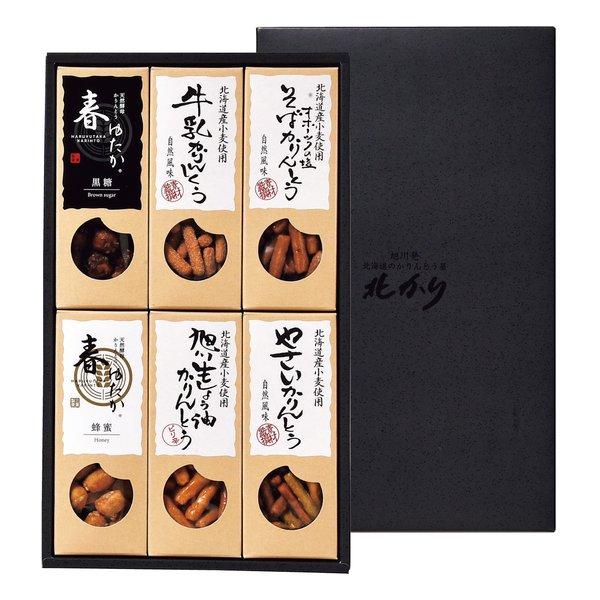 天然酵母
かりんとう
春ゆたか。
HARUYUTAKA
KARINTO
黒糖
Brown sugar
北海道産小麦使用
牛乳かりんとう
自然風味
北海道産小麦使用
オホーツクの塩
そばかりんとう
自然風味
天然酵母
かりんとう
春ゆたか。
HARUYUTAKA
KARINTO
蜂蜜
Honey
北海道産小麦使用
旭川生しょうゆ油
かりんとう
ピリ辛
北海道産小麦使用
やさいかりんとう
自然風味
旭川発
北海道のかりんとう屋
北かり